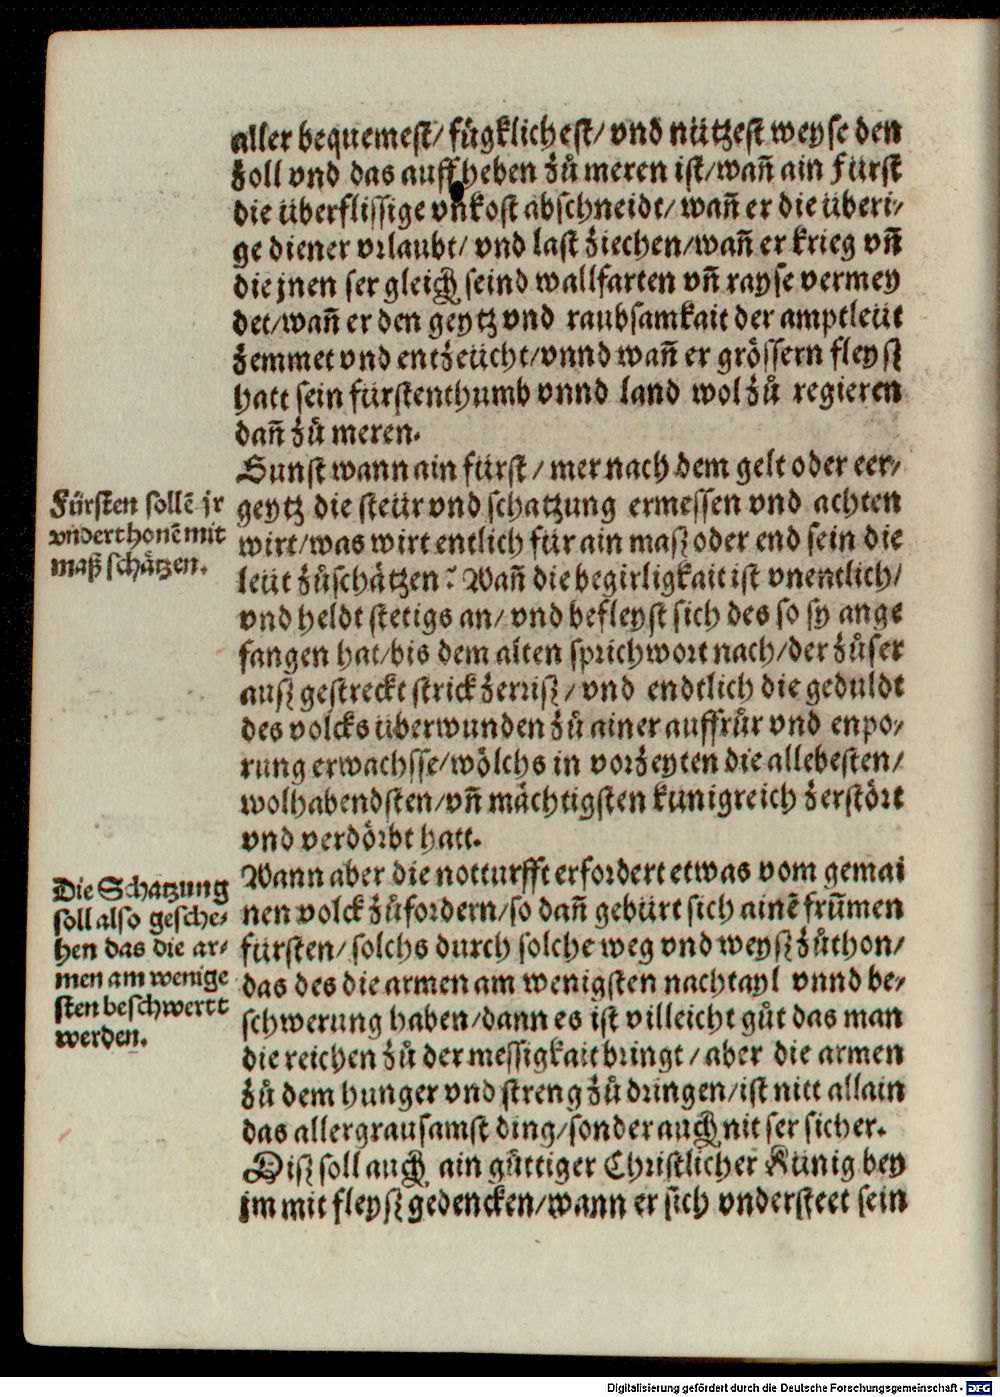 aller bequemest/ fůgklichest/ vnd nützest weyse den
zoll vnd das auffheben zů meren ist/wañ ain Fürst
die überflissige vnkost abschneidt/ wañ er die überi/
ge diener vrlaubt/ vnd last ziechen/wañ er krieg vñ
die jnen ser gleich seind wallfarten vñ rayse vermey
det/wañ er den geytz vnd raubsamkait der amptleüt
zemmet vnd entzeücht/vnnd wañ er grössern fleysz
hatt sein fürstenthumb vnnd land wol zů regieren
dañ zů meren.
Sunst wann ain fürst / mer nach dem gelt oder eer/
geytz die steür vnd schatzung ermessen vnd achten
wirt/was wirt entlich für ain masz oder end sein die
leüt zůschätzen? Wañ die begirligkait ist vnentlich/
vnd heldt stetigs an/ vnd befleyst sich des so sy ange
fangen hat/bis dem alten sprichwort nach/der zůser
ausz gestreckt strick zerrisz/ vnd endtlich die geduldt
des volcks überwunden zů ainer auffrůr vnd enpo/
rung erwachsse/wölchs in vorzeyten die allebesten/
wolhabendsten/vñ mächtigsten künigreich zerstört
vnd verdörbt hatt.
Wann aber die notturfft erfordert etwas vom gemai
nen volck zůfordern/so dañ gebürt sich ainẽ frũmen
fürsten/ solchs durch solche weg vnd weysz zůthon/
das des die armen am wenigsten nachtayl vnnd be/
schwerung haben/dann es ist villeicht gůt das man
die reichen zů der messigkait bringt/ aber die armen
zů dem hunger vnd streng zů dringen/ist nitt allain
das allergrausamst ding/sonder auch nit ser sicher.
Disz soll auch ain güttiger Christlicher Künig bey
jm mit fleysz gedencken/wann er sich vndersteet sein
Fürsten sollẽ jr
vnderthonẽ mit
maß schätzen.
Die Schatzung
soll also gesche/
hen das die ar/
men am wenige
sten beschwertt
werden.
Digitalisierung gefördert durch die Deutsche Forschungsgemeinschaft - DFG